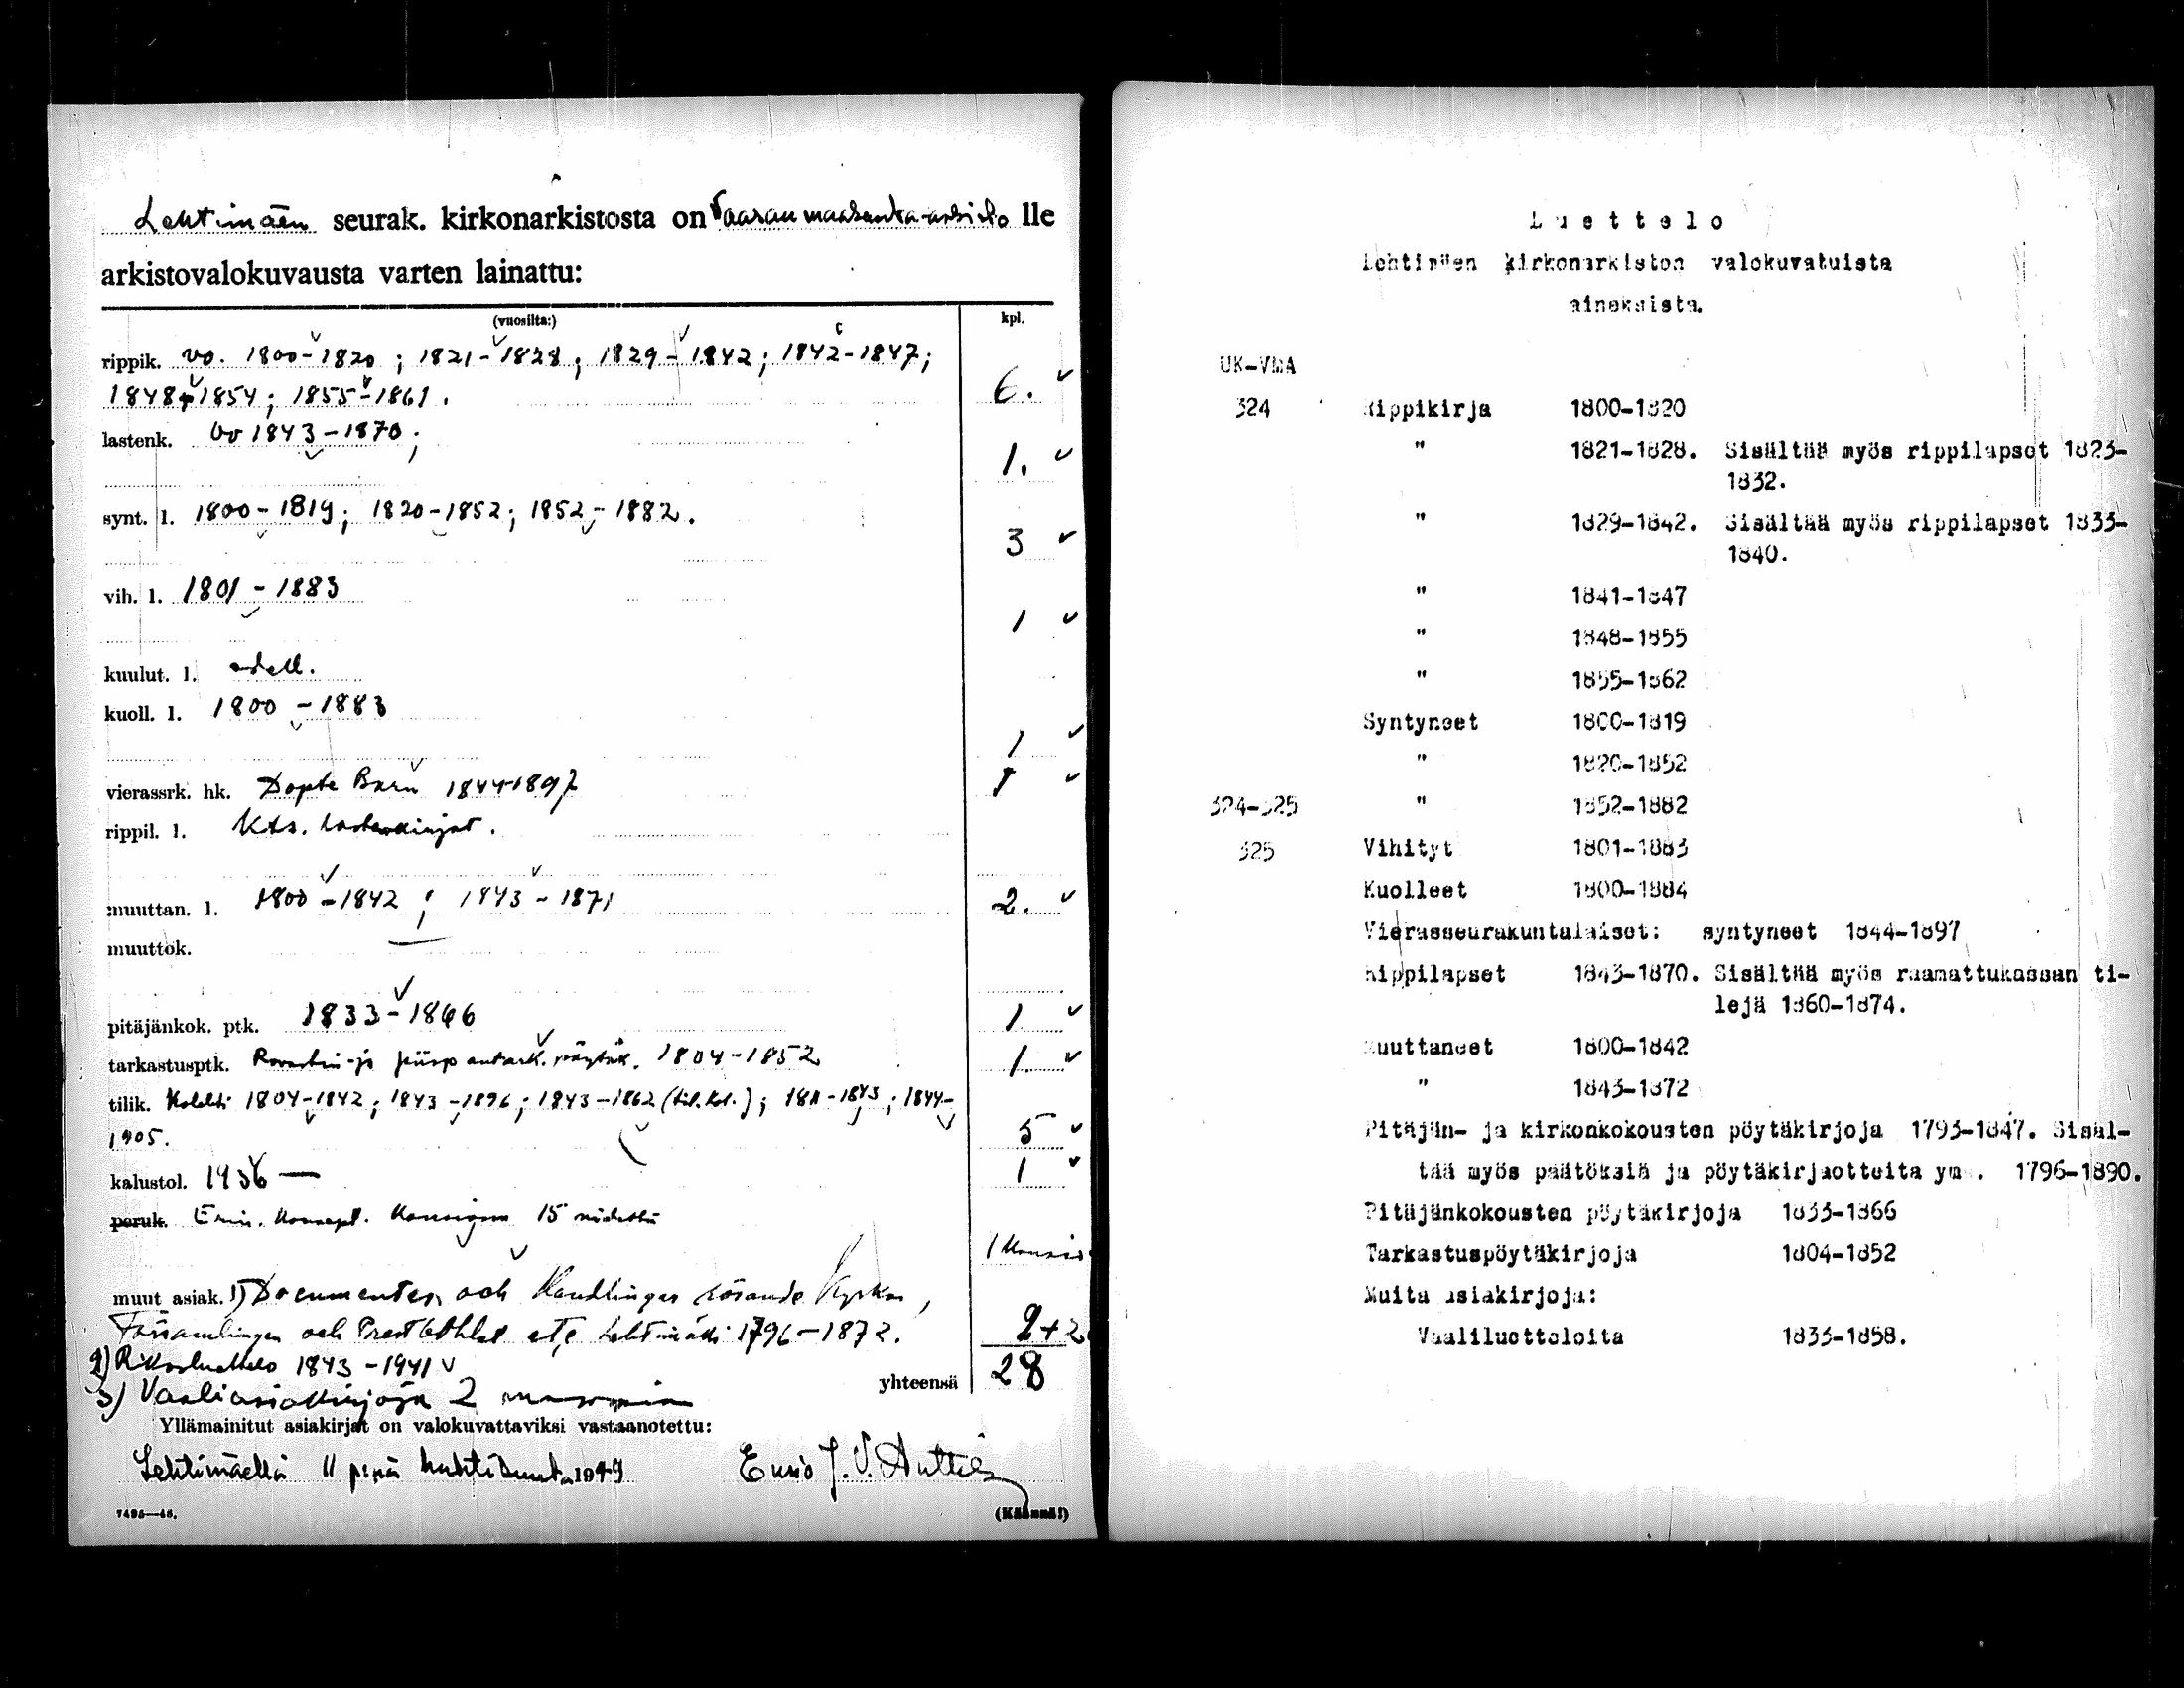 Lehtimäen seurak. kirkonarkistosta on Vaasan maakunta-arkisto lle
arkistovalokuvausta varten lainattu:
(vuosilta:) kpl.
rippik. vv. 1800-1820; 1821-1828; 1829-1842; 1842-1847;
1848-1854; 1855-1861. 6.
lastenk. vv 1843-1870; 1.
synt. l. 1800-1819; 1820-1852; 1852-1882. 3
vih. l. 1801-1883 1
kuulut. l. edell.
kuoll. l. 1800-1883 1
vierassrk. hk. Döpte Barn 1844-1897 1
rippil. l. Kts. lastenkirjat.
muuttan. l. 1800-1842; 1843-1871 2.
muuttok. —
pitäjänkok. ptk. 1833-1866 1
tarkastusptk. 1804-1852 1.
tilik. 1804-1842; 1843-1896; 1843-1862 1844-
1905. 5
kalustol. 1936— 1
peruk. 15
muut asiak. 1) Documenter och Handlingar rörande Kyrkan,
Församlingen och etc Lehtimäki 1796-1872. 2+2
2) Rikosluettelo 1843-1941
3) Vaaliasiakirjoja 2 yhteensä 28
Yllämainitut asiakirjat on valokuvattaviksi vastaanotettu:
Lehtimäellä 11 p:nä huhtikuuta 1949 Ensio J. V. Anttila
7495—48. (Käännä!)
Luettelo
Lehtimäen kirkonarkiston valokuvatuista
aineksista.
UK-VMA
324 Rippikirja 1800-1820
" 1821-1828. Sisältää myös rippilapset 1823-
1832.
" 1829-1842. Sisältää myös rippilapset 1833-
1840.
" 1841-1847
" 1848-1855
" 1855-1862
Syntyneet 1800-1819
" 1820-1852
324-325 " 1852-1882
325 Vihityt 1801-1883
Kuolleet 1800-1884
Vierasseurakuntalaiset: syntyneet 1844-1897
Rippilapset 1843-1870. Sisältää myös raamattukassan ti-
lejä 1860-1874.
Muuttaneet 1800-1842
" 1843-1872
Pitäjän- ja kirkonkokousten pöytäkirjoja 1793-1847. Sisäl-
tää myös päätöksiä ja pöytäkirjaotteita ym. 1796-1890.
Pitäjänkokousten pöytäkirjoja 1833-1866
Tarkastuspöytäkirjoja 1804-1852
Muita asiakirjoja:
Vaaliluetteloita 1833-1858.